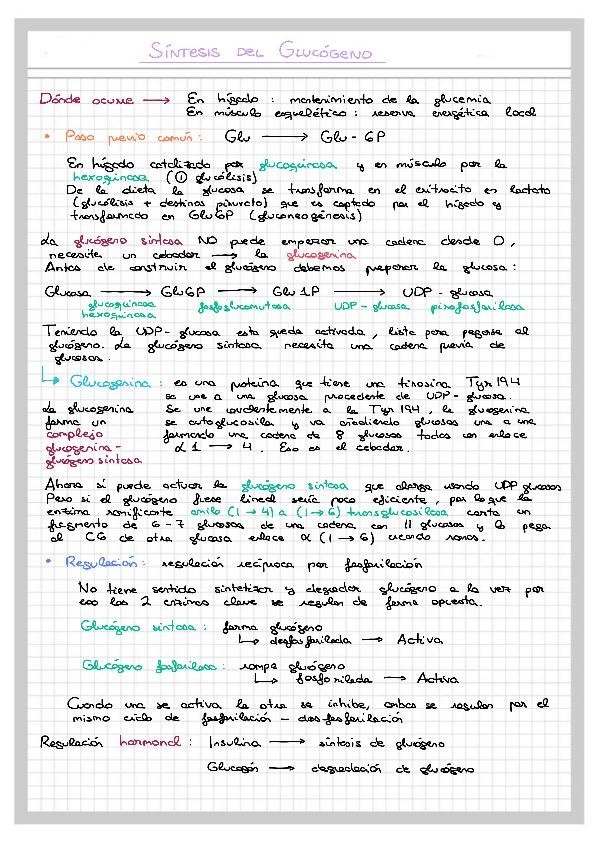 SÍNTESIS DEL GLUCÓGENO
Dónde ocurre → En hígado : mantenimiento de la glucemia
En músculo esquelético : reserva energética local
• Paso previo común : Glu → Glu - 6P
En hígado catalizado por glucoquinasa y en músculo por la
hexoquinasa (① glucólisis)
De la dieta la glucosa se transforma en el eritrocito en lactato
(glucólisis + destinos piruvato) que es captado por el hígado y
transformado en Glu6P (gluconeogénesis)
La glucógeno sintasa NO puede empezar una cadena desde 0,
necesita un cebador → la glucogenina
Antes de construir el glucógeno debemos preparar la glucosa :
Glucosa → Glu6P → Glu 1P → UDP - glucosa
glucoquinasa fosfoglucomutasa UDP - glucosa pirofosforilasa
hexoquinasa
Teniendo la UDP-glucosa esta queda activada, lista para pegarse al
glucógeno. La glucógeno sintasa necesita una cadena previa de
glucosas.
↳ Glucogenina : es una proteína que tiene una tirosina Tyr 194
se une a una glucosa procedente de UDP-glucosa.
La glucogenina Se une covalentemente a la Tyr 194, la glucogenina
forma un se autoglucosila y va añadiendo glucosas una a una
complejo formando una cadena de 8 glucosas todas con enlace
glucogenina - α 1 → 4. Eso es el cebador.
glucógeno sintasa
Ahora sí puede actuar la glucógeno sintasa que alarga usando UDP glucosas
Pero si el glucógeno fuese lineal sería poco eficiente, por lo que la
enzima ramificante amilo (1 → 4) a (1 → 6) transglucosilasa corta un
fragmento de 6 - 7 glucosas de una cadena con 11 glucosas y lo pega
al C6 de otra glucosa enlace α (1 → 6) creando ramas.
• Regulación : regulación recíproca por fosforilación
No tiene sentido sintetizar y degradar glucógeno a la vez por
eso las 2 enzimas clave se regulan de forma opuesta.
Glucógeno sintasa : forma glucógeno
↳ desfosforilada → Activa
Glucógeno fosforilasa : rompe glucógeno
↳ fosforilada → Activa
Cuando una se activa la otra se inhibe, ambas se regulan por el
mismo ciclo de fosforilación - desfosforilación
Regulación hormonal : Insulina → síntesis de glucógeno
Glucagón → degradación de glucógeno